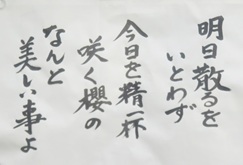 明日散るを
いとわず
今日を精一杯
咲く櫻の
なんと
美しい事よ